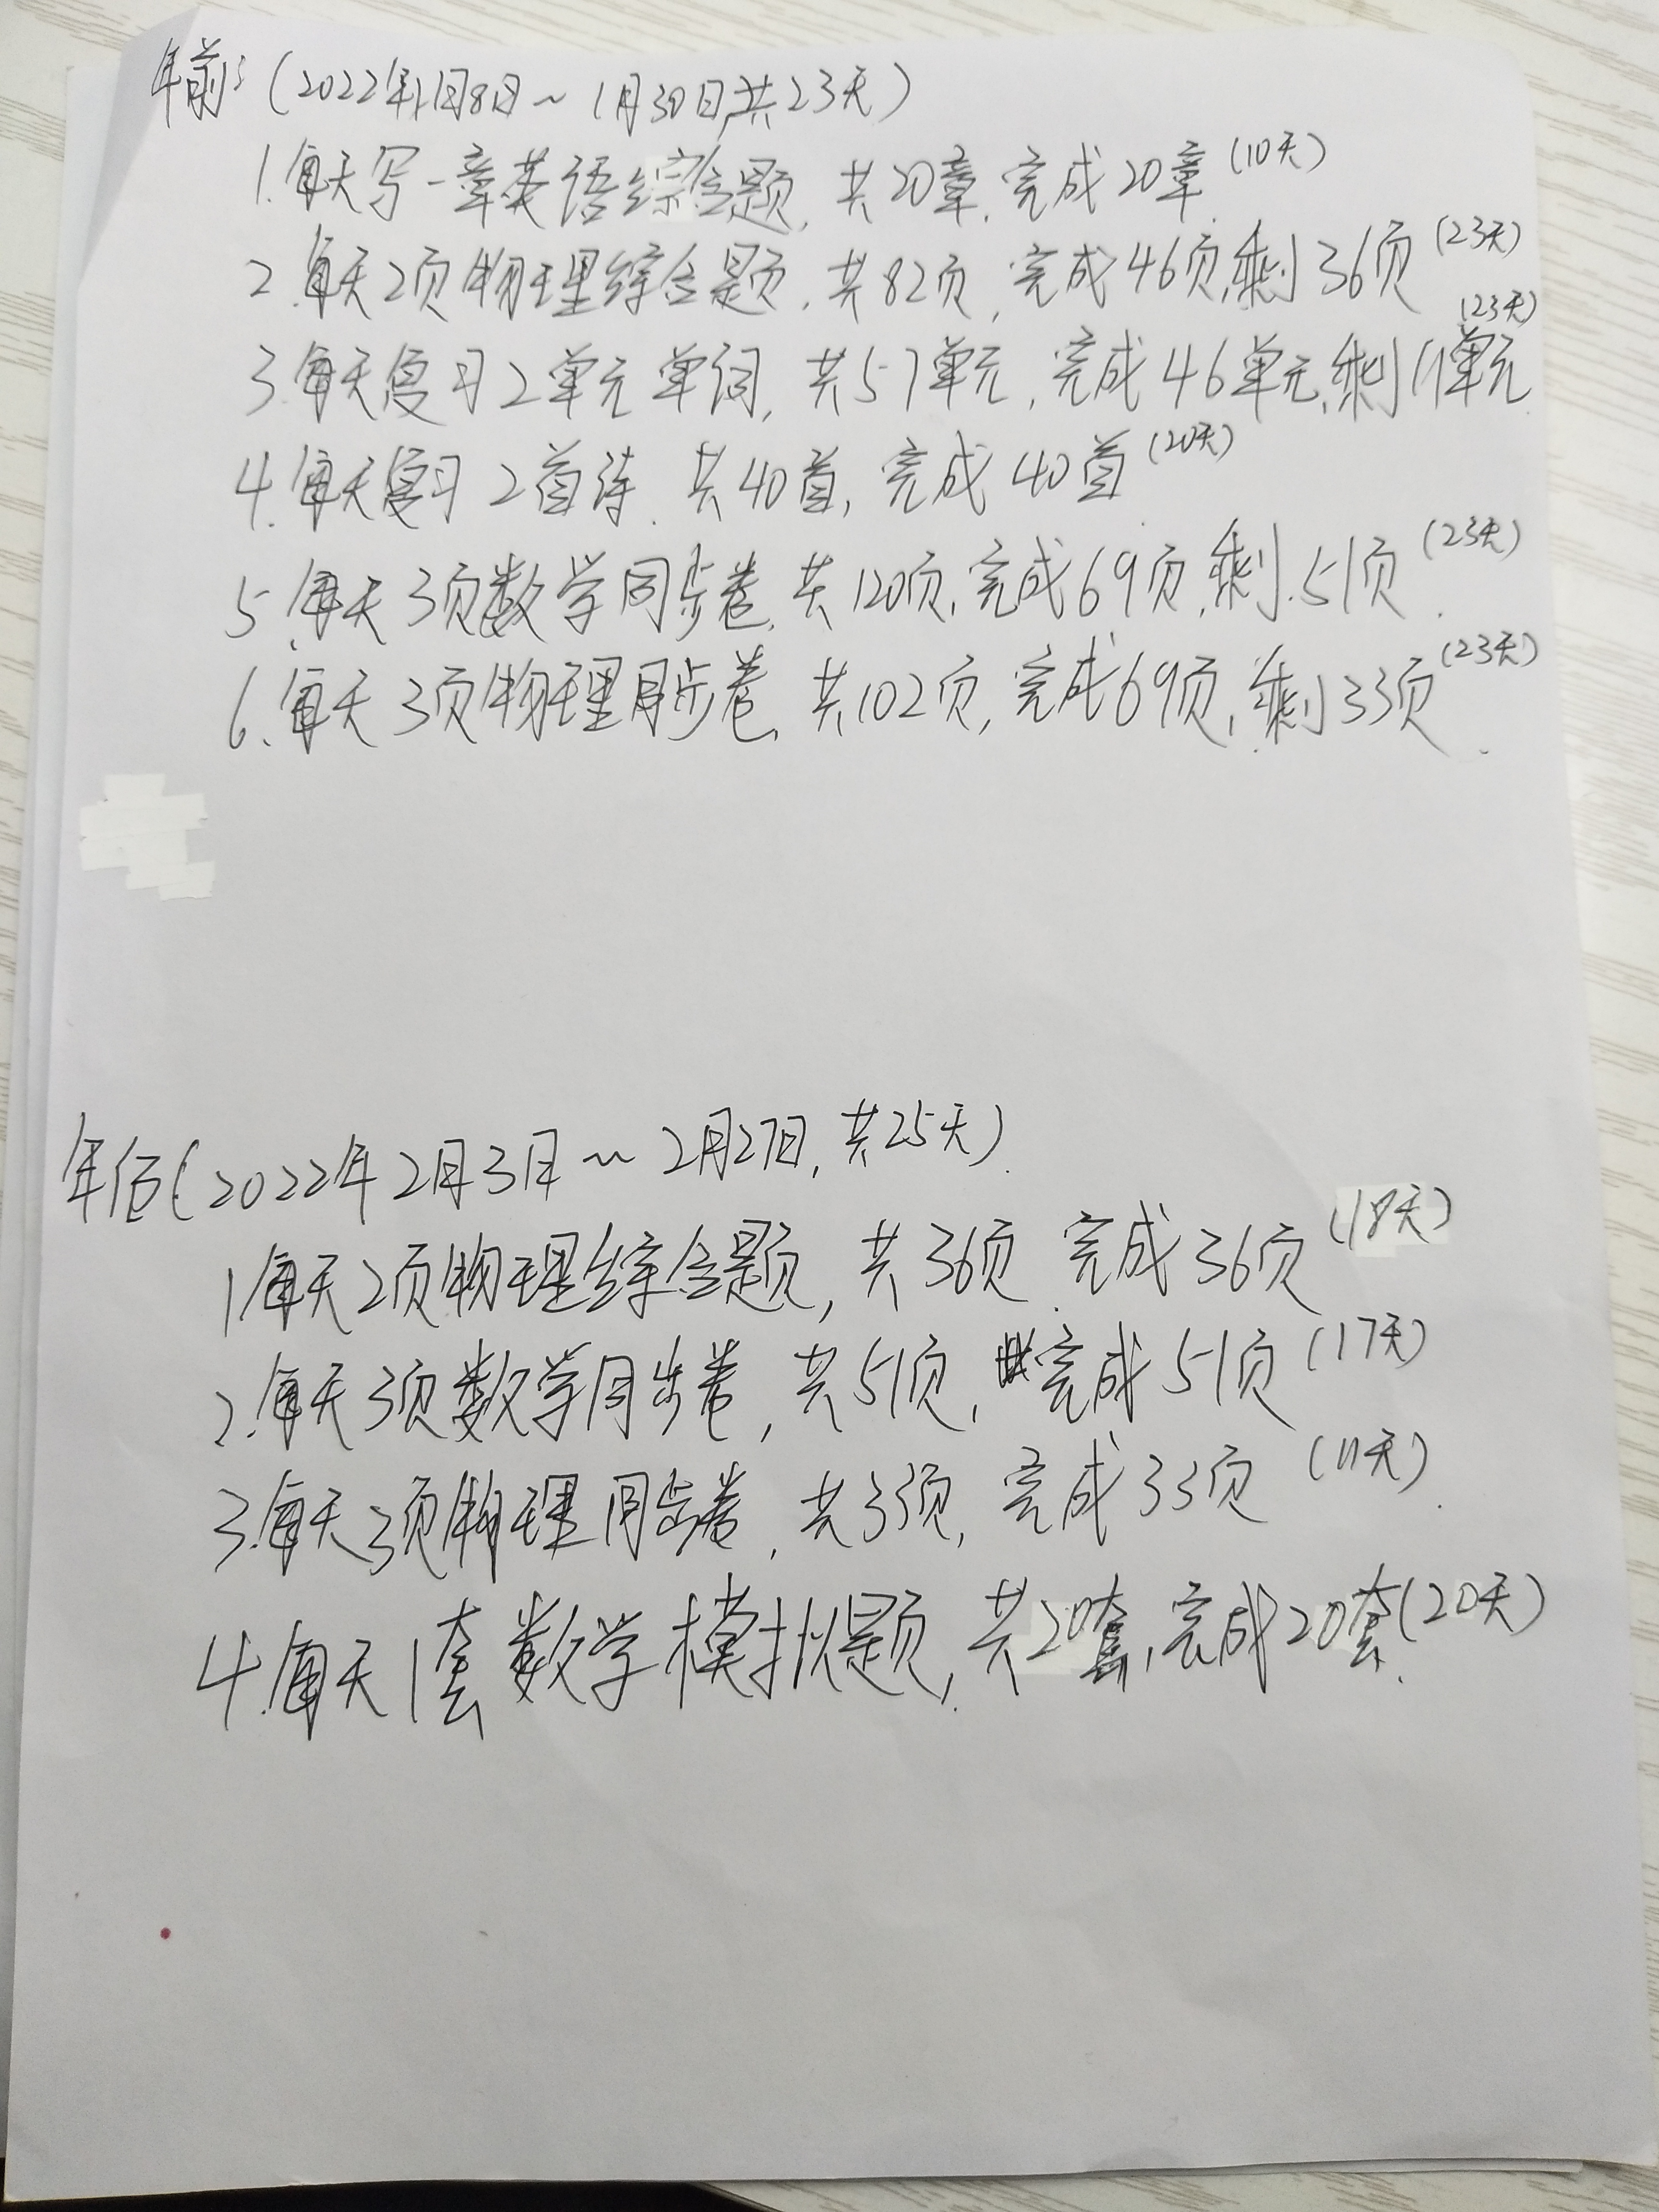 年前:(2022年1月8日~1月30日,共23天)
1.每天写一章英语综合题,共20章,完成20章(10天)
2.每天2页物理综合题,共82页,完成46页,剩36页(23天)
3.每天复习2单元单词,共57单元,完成46单元,剩11单元(23天)
4.每天复习2首诗,共40首,完成40首(20天)
5.每天3页数学同步卷,共120页,完成69页,剩51页(23天)
6.每天3页物理同步卷,共102页,完成69页,剩33页(23天)
年后(2022年2月3日~2月27日,共25天)
1.每天2页物理综合题,共36页,完成36页(18天)
2.每天3页数学同步卷,共51页,完成51页(17天)
3.每天3页物理同步卷,共33页,完成33页(11天)
4.每天1套数学模拟题,共20套,完成20套(20天)